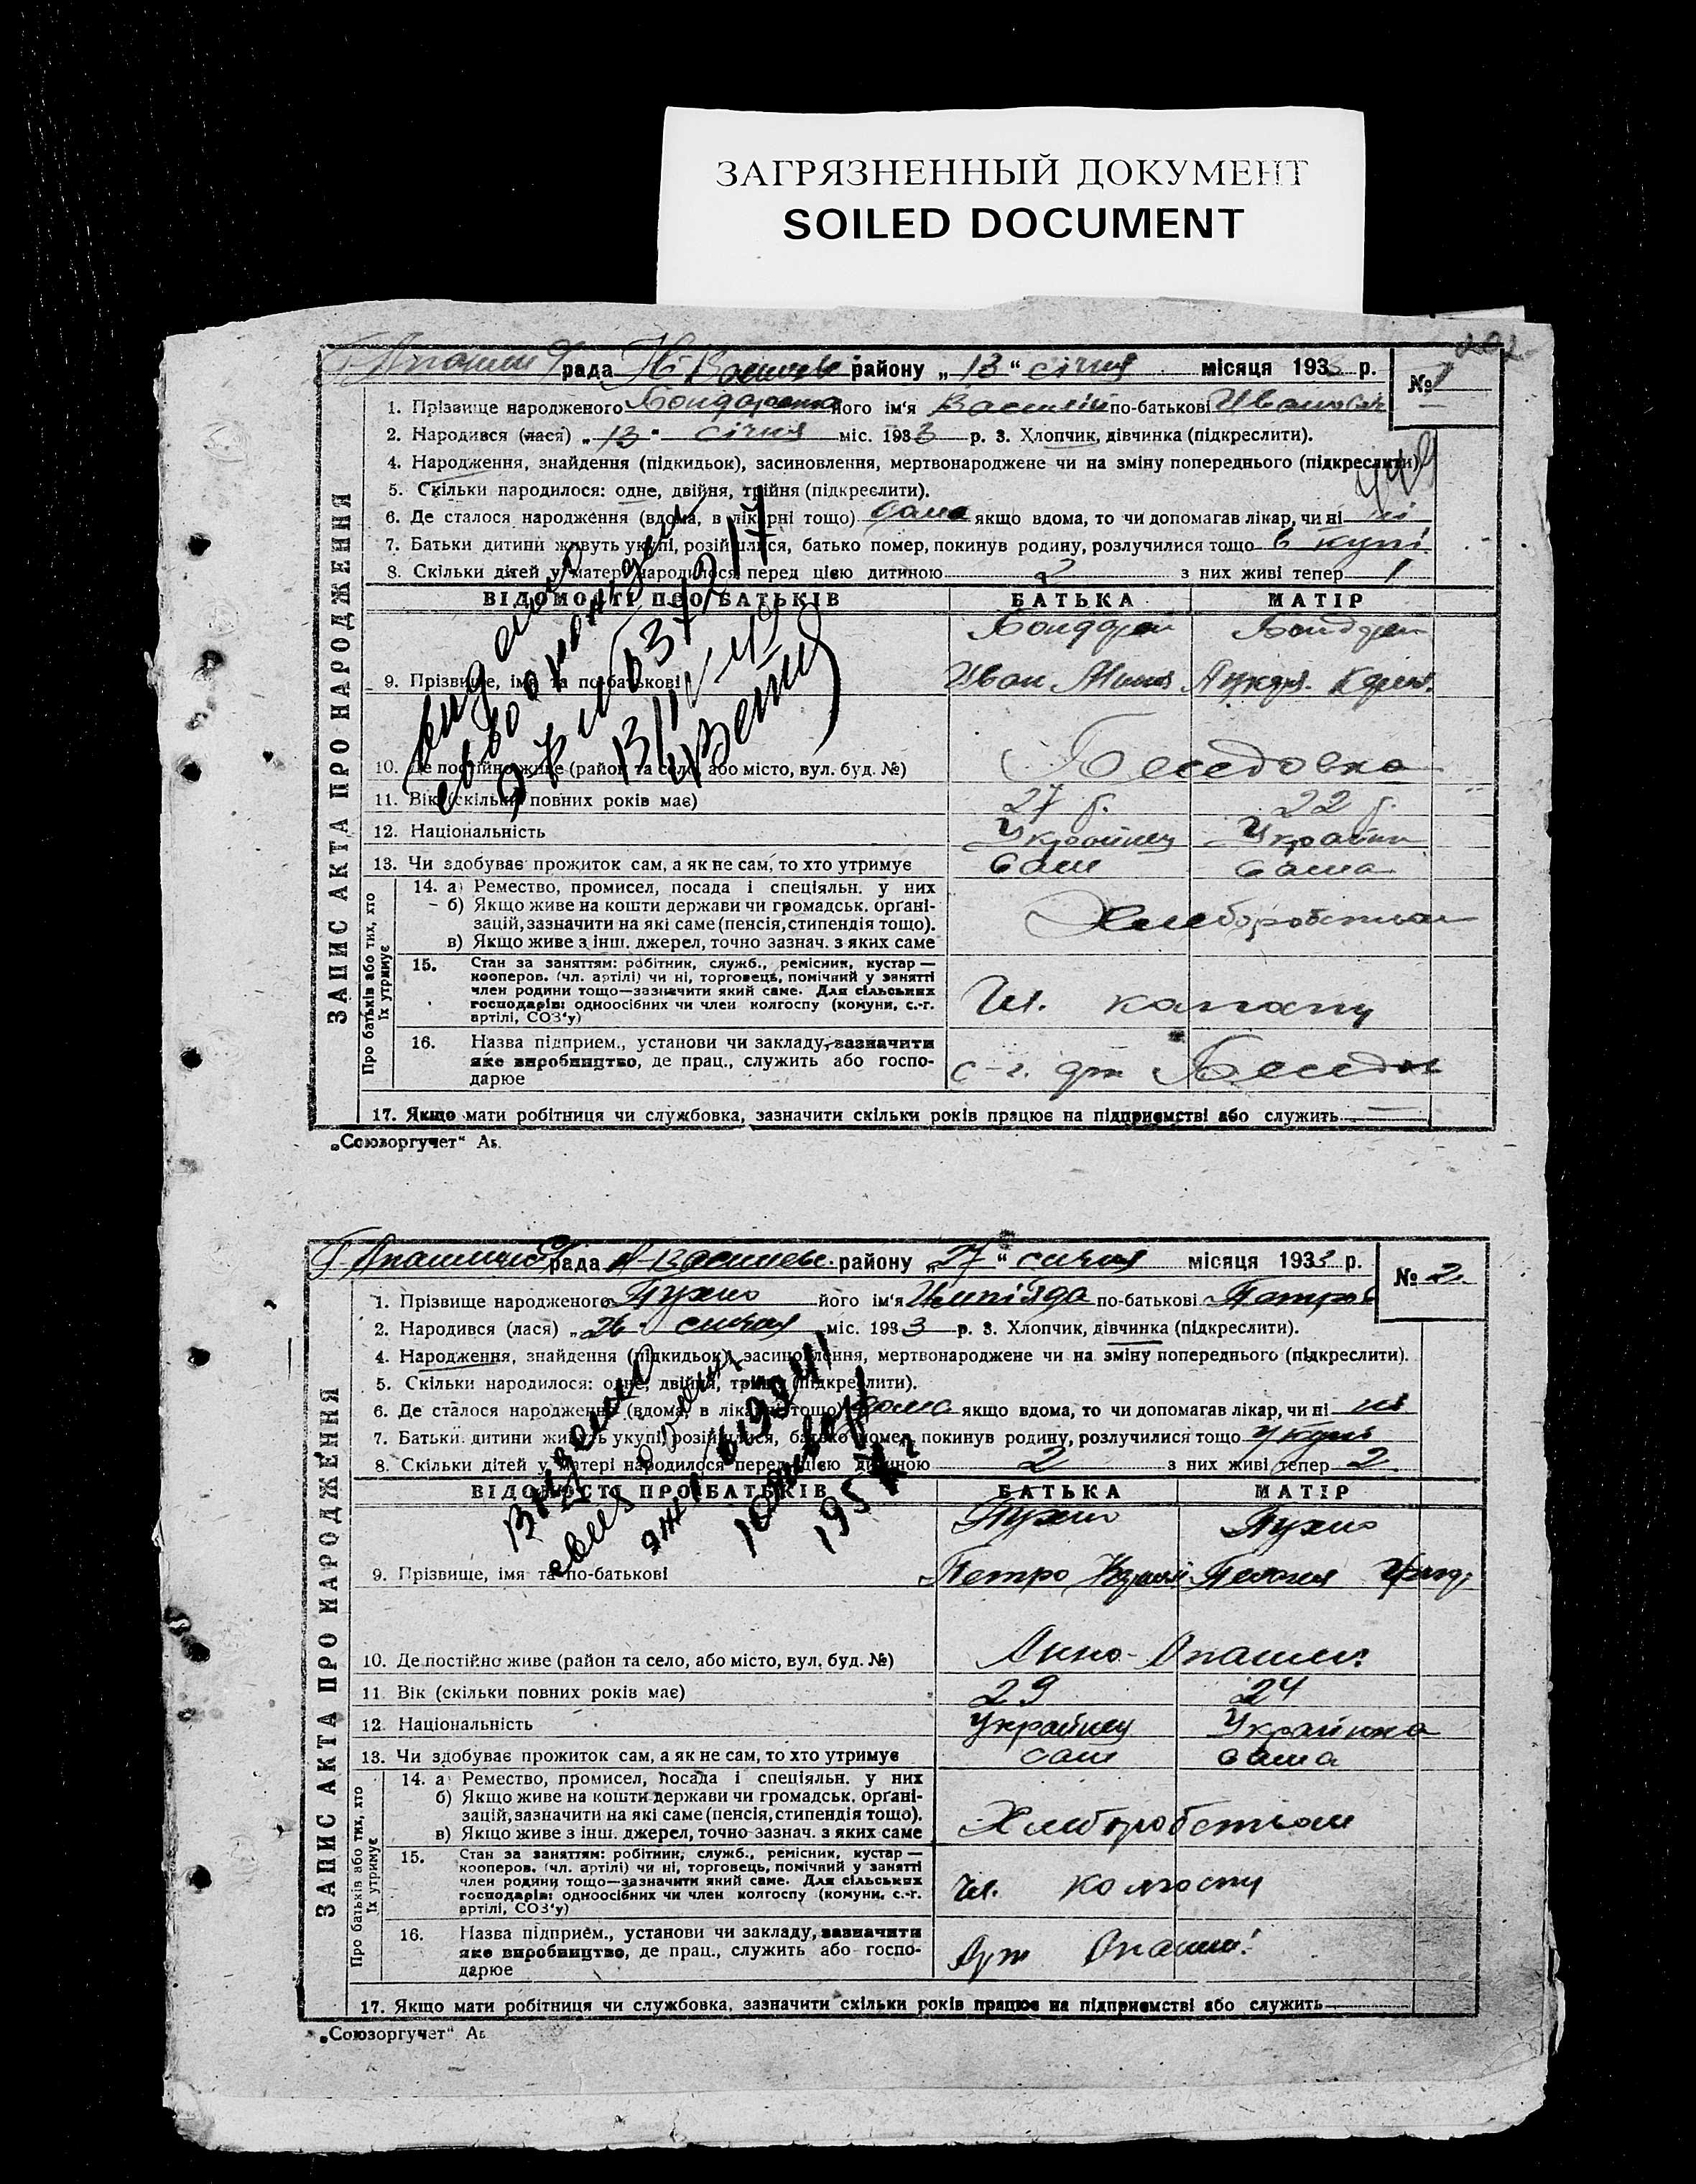 ЗАГРЯЗНЕННЫЙ ДОКУМЕНТ
SOILED DOCUMENT
202
рада району „ 13 “ січня місяця 1933 р. № 1
ЗАПИС АКТА ПРО НАРОДЖЕННЯ
1. Прізвище народженого його ім'я Василій по-батькові
2. Народився (лася) „ 13 “ січня міс. 1933 р. 3. Хлопчик, дівчинка (підкреслити).
4. Народження, знайдення (підкидьок), засиновлення, мертвонароджене чи на зміну попереднього (підкреслити)
5. Скільки народилося: одне, двійня, трійня (підкреслити).
6. Де сталося народження (вдома, в лікарні тощо) дома якщо вдома, то чи допомагав лікар, чи ні ні
7. Батьки дитини живуть укупі, розійшлися, батько помер, покинув родину, розлучилися тощо в купі
8. Скільки дітей у матері народилося перед цією дитиною 2 з них живі тепер 1
ВІДОМОСТІ ПРО БАТЬКІВ БАТЬКА МАТІР
9. Прізвище, імя та по-батькові Иван
10. Де постійно живе (район та село, або місто, вул. буд. №) Беседовка
11. Вік (скільки повних років має) 27 22
12. Національність Украйнец
13. Чи здобуває прожиток сам, а як не сам, то хто утримує сам сама
Про батьків або тих, хто їх утримує
14. а) Ремество, промисел, посада і спеціяльн. у них
б) Якщо живе на кошти держави чи громадськ. орґані-
зацій, зазначити на які саме (пенсія, стипендія тощо).
в) Якщо живе з інш. джерел, точно зазнач. з яких саме
15. Стан за заняттям: робітник, служб., ремісник, кустар —
кооперов. (чл. артілі) чи ні, торговець, помічний у занятті
член родини тощо—зазначити який саме. Для сільських
господарів: одноосібних чи член колгоспу (комуни, с.-г.
артілі, СОЗ'у)
Чл.
16. Назва підприєм., установи чи закладу, зазначити
яке виробництво, де прац., служить або госпо-
дарює
17. Якщо мати робітниця чи службовка, зазначити скільки років працює на підприємстві або служить —
„Союзоргучет“
рада району „ 27 “ січня місяця 1933 р. № 2
ЗАПИС АКТА ПРО НАРОДЖЕННЯ
1. Прізвище народженого Пухно його ім'я по-батькові
2. Народився (лася) „ 26 “ січня міс. 1933 р. 3. Хлопчик, дівчинка (підкреслити).
4. Народження, знайдення (підкидьок), засиновлення, мертвонароджене чи на зміну попереднього (підкреслити).
5. Скільки народилося: одне, двійня, трійня (підкреслити).
6. Де сталося народження (вдома, в лікарні тощо) дома якщо вдома, то чи допомагав лікар, чи ні ні
7. Батьки дитини живуть укупі, розійшлися, батько помер, покинув родину, розлучилися тощо укупі
8. Скільки дітей у матері народилося перед цією дитиною 2 з них живі тепер 2
ВІДОМОСТІ ПРО БАТЬКІВ БАТЬКА МАТІР
Пухно Пухно
9. Прізвище, імя та по-батькові Петро
10. Де постійно живе (район та село, або місто, вул. буд. №)
11. Вік (скільки повних років має) 29 24
12. Національність Украйнец Украйинка
13. Чи здобуває прожиток сам, а як не сам, то хто утримує сам сама
Про батьків або тих, хто їх утримує
14. а) Ремество, промисел, посада і спеціяльн. у них
б) Якщо живе на кошти держави чи громадськ. орґані-
зацій, зазначити на які саме (пенсія, стипендія тощо).
в) Якщо живе з інш. джерел, точно зазнач. з яких саме
15. Стан за заняттям: робітник, служб., ремісник, кустар —
кооперов. (чл. артілі) чи ні, торговець, помічний у занятті
член родини тощо—зазначити який саме. Для сільських
господарів: одноосібних чи член колгоспу (комуни, с.-г.
артілі, СОЗ'у)
Чл. колгоспу
16. Назва підприєм., установи чи закладу, зазначити
яке виробництво, де прац., служить або госпо-
дарює
17. Якщо мати робітниця чи службовка, зазначити скільки років працює на підприємстві або служить
„Союзоргучет“